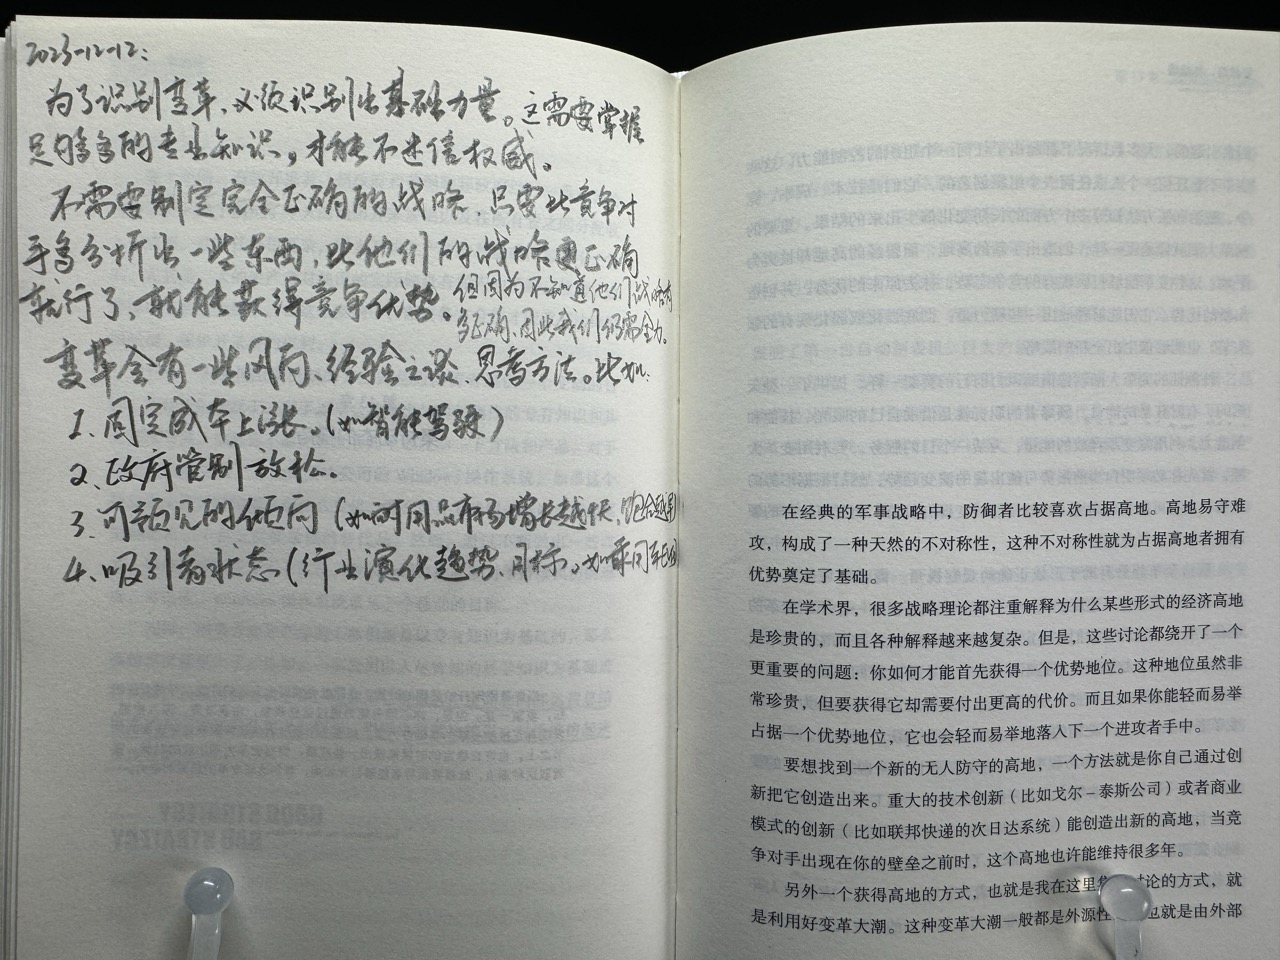 2023-12-12:
为了识别变革、必须识别出基础力量。这需要掌握
足够多的专业知识，才能不迷信权威。
不需要制定完全正确的战略，只要比竞争对
手多分析出一些东西，比他们的战略更正确
就行了，就能获得竞争优势。但因为不知道他们战略有
多正确，因此我们仍需全力。
变革会有一些风向、经验之谈、思考方法。比如：
1、固定成本上涨。（如智能驾驶）
2、政府管制放松。
3、可预见的倾向（如耐用品市场增长越快，
4、吸引者状态（行业演化趋势、目标。如乘用车
GOOD STRATEGY
BAD STRATEGY
在经典的军事战略中，防御者比较喜欢占据高地。高地易守难
攻，构成了一种天然的不对称性，这种不对称性就为占据高地者拥有
优势奠定了基础。
在学术界，很多战略理论都注重解释为什么某些形式的经济高地
是珍贵的，而且各种解释越来越复杂。但是，这些讨论都绕开了一个
更重要的问题：你如何才能首先获得一个优势地位。这种地位虽然非
常珍贵，但要获得它却需要付出更高的代价。而且如果你能轻而易举
占据一个优势地位，它也会轻而易举地落入下一个进攻者手中。
要想找到一个新的无人防守的高地，一个方法就是你自己通过创
新把它创造出来。重大的技术创新（比如戈尔－泰斯公司）或者商业
模式的创新（比如联邦快递的次日达系统）能创造出新的高地，当竞
争对手出现在你的壁垒之前时，这个高地也许能维持很多年。
另外一个获得高地的方式，也就是我在这里 讨论的方式，就
是利用好变革大潮。这种变革大潮一般都是外源性 也就是由外部